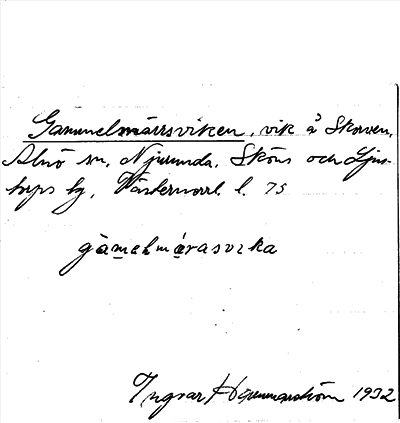 Gammelmärrsviken, vik å Skorven,
Alnö sn, Njurunda, Sköns och Ljus-
torps hg, Västernorrl. l. 75
gàmelmǽrasvika
Ingvar Hammarström 1932